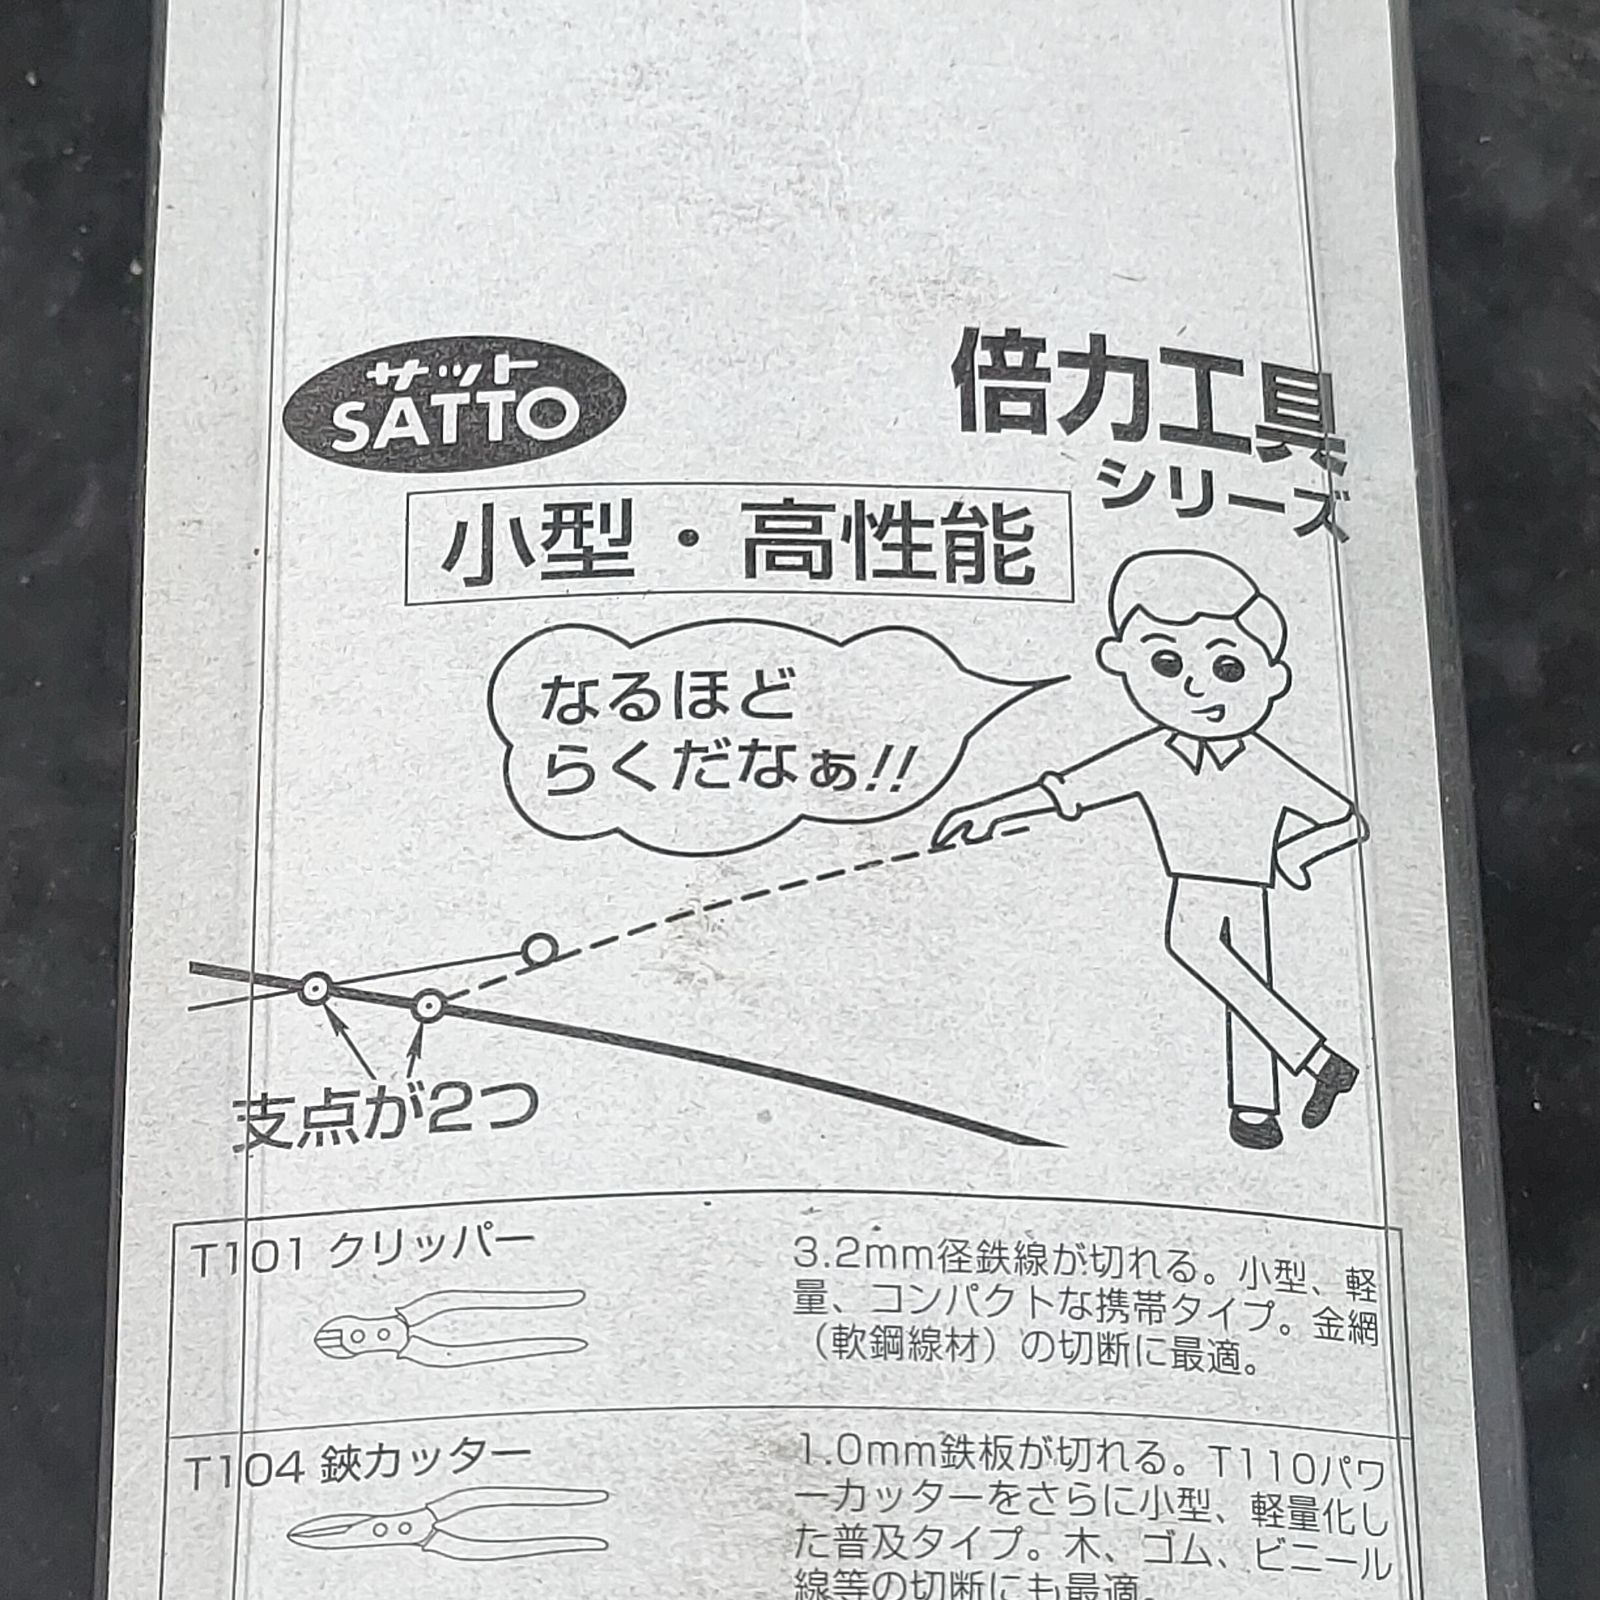 サット
SATTO
倍力工具
シリーズ
小型・高性能
なるほど
らくだなぁ!!
支点が2つ
T101 クリッパー
3.2mm径鉄線が切れる。小型、軽
量、コンパクトな携帯タイプ。金網
（軟鋼線材）の切断に最適。
T104 鋏カッター
1.0mm鉄板が切れる。T110パワ
ーカッターをさらに小型、軽量化し
た普及タイプ。木、ゴム、ビニール
線等の切断にも最適。